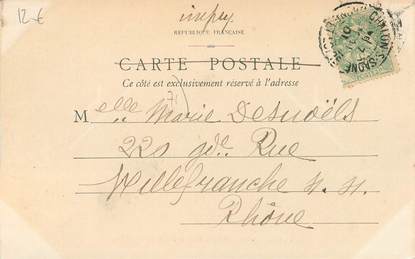 12 €
RÉPUBLIQUE FRANÇAISE
CARTE POSTALE
Ce côté est exclusivement réservé à l'adresse
Melle Marie Desnoëls
220 gde Rue
Villefranche s. S.
Rhône